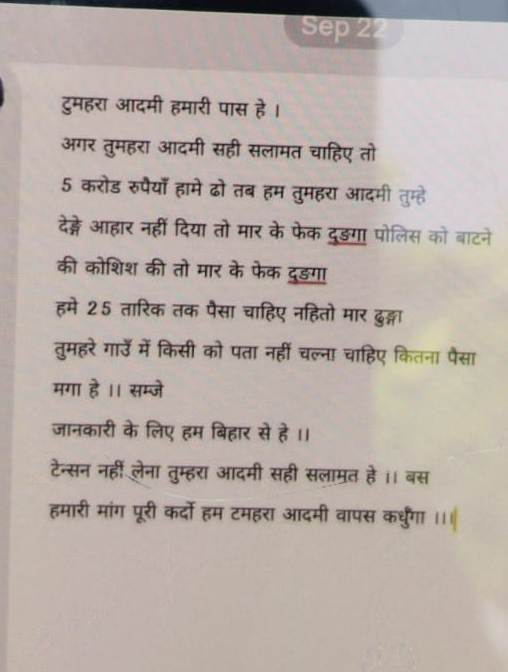 Sep 22
टुमहरा आदमी हमारी पास हे ।
अगर तुमहरा आदमी सही सलामत चाहिए तो
5 करोड रुपैयाँ हामे ढो तब हम तुमहरा आदमी तुम्हे
देङ्गे आहार नहीं दिया तो मार के फेक दुङगा पोलिस को बाटने
की कोशिश की तो मार के फेक दुङगा
हमे 25 तारिक तक पैसा चाहिए नहितो मार ढुङ्गा
तुमहरे गाउँ में किसी को पता नहीं चल्ना चाहिए कितना पैसा
मगा हे ।। सम्जे
जानकारी के लिए हम बिहार से हे ।।
टेन्सन नहीं लेना तुम्हरा आदमी सही सलामत हे ।। बस
हमारी मांग पूरी कर्दो हम टमहरा आदमी वापस कर्धुँगा ।।।